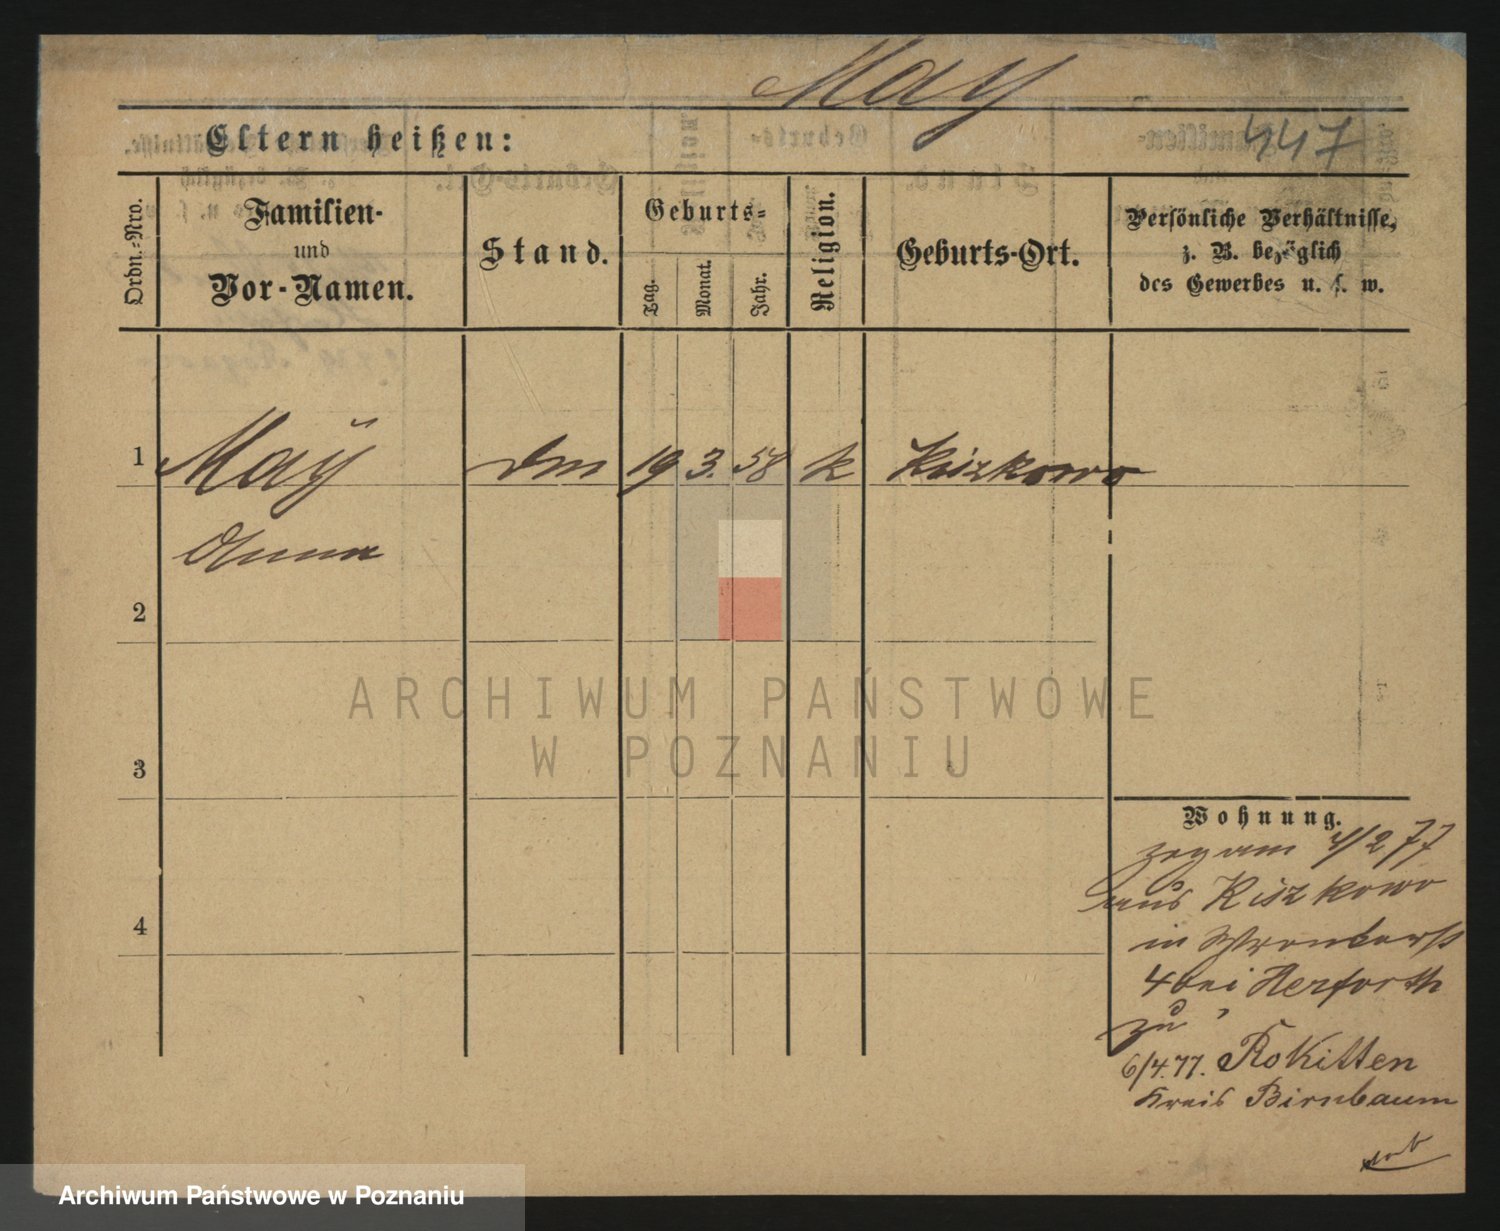 May
447
Eltern heißen:
Ordn.-Nro.
Familien-
und
Vor-Namen.
Stand.
Geburts-
Tag.
Monat.
Jahr.
Religion.
Geburts-Ort.
Persönliche Verhältnisse,
z. B. bezüglich
des Gewerbes u. s. w.
1 Maÿ 19 3. 58 k Kiszkowo
Anna
2
3
4
ARCHIWUM PAŃSTWOWE
W POZNANIU
Wohnung.
zog am 4/2 77
aus Kiszkowo
in
4 bei Herforth
zu
6/4.77. Rokitten
Kreis Birnbaum
Archiwum Państwowe w Poznaniu